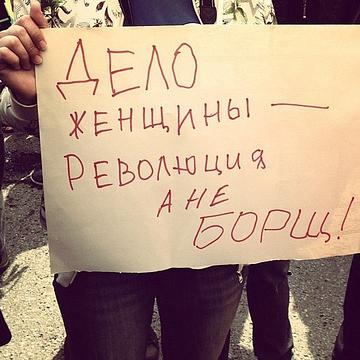 ДЕЛО
ЖЕНЩИНЫ —
РЕВОЛЮЦИЯ
А НЕ
БОРЩ!